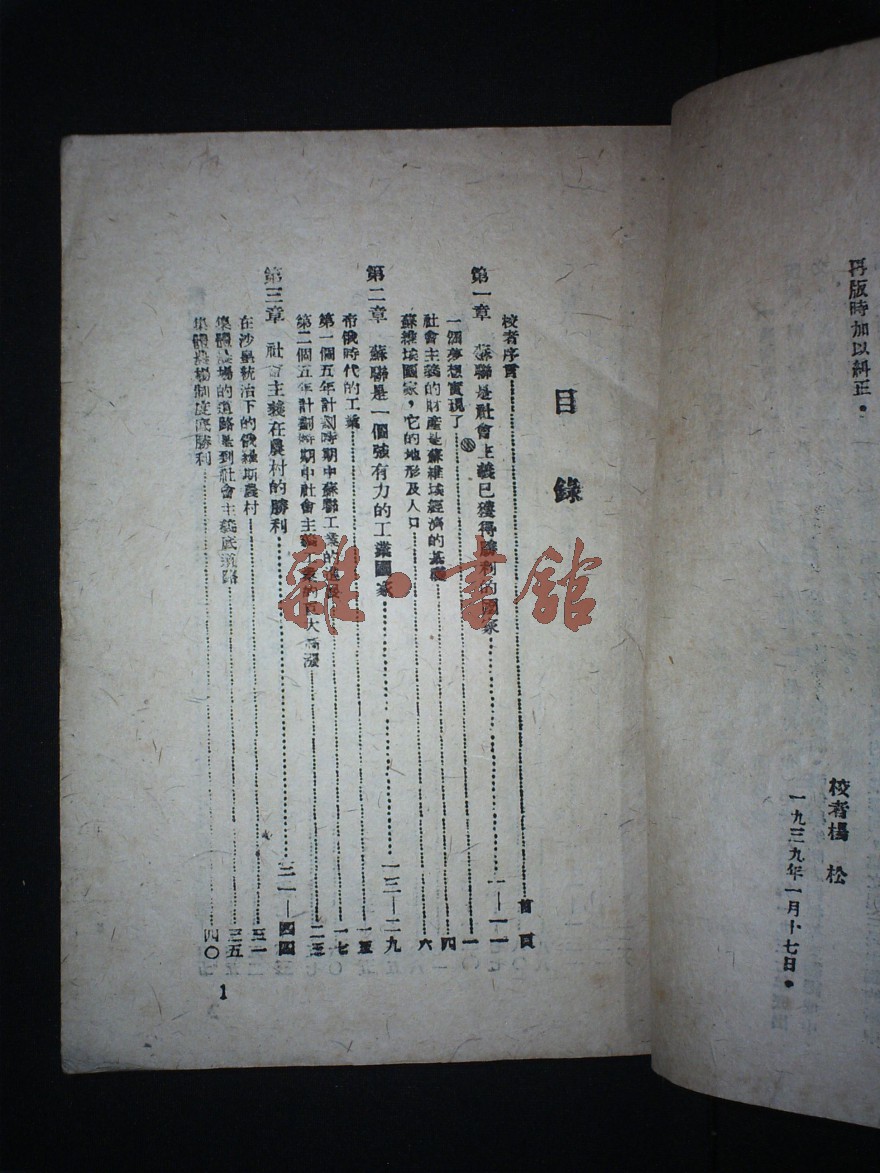 再版時加以糾正。
校者楊 松
一九三九年一月十七日。
目 錄
校者序言……首頁
第一章 蘇聯是社會主義已獲得勝利的國家……一—一一
一個夢想實現了……一
社會主義的財產是蘇維埃經濟的基礎……四
蘇維埃國家,它的地形及人口……六
第二章 蘇聯是一個强有力的工業國家……一三—二九
帝俄時代的工業……一三
第一個五年計劃時期中蘇聯工業的進展……一七
第二個五年計劃時期中社會主義工業的巨大高漲……二三
第三章 社會主義在農村的勝利……三一—四四
在沙皇統治下的俄羅斯農村……三一
集體農場的道路是到社會主義底道路……三五
集體農場制度底勝利……四〇
1
雜·書館